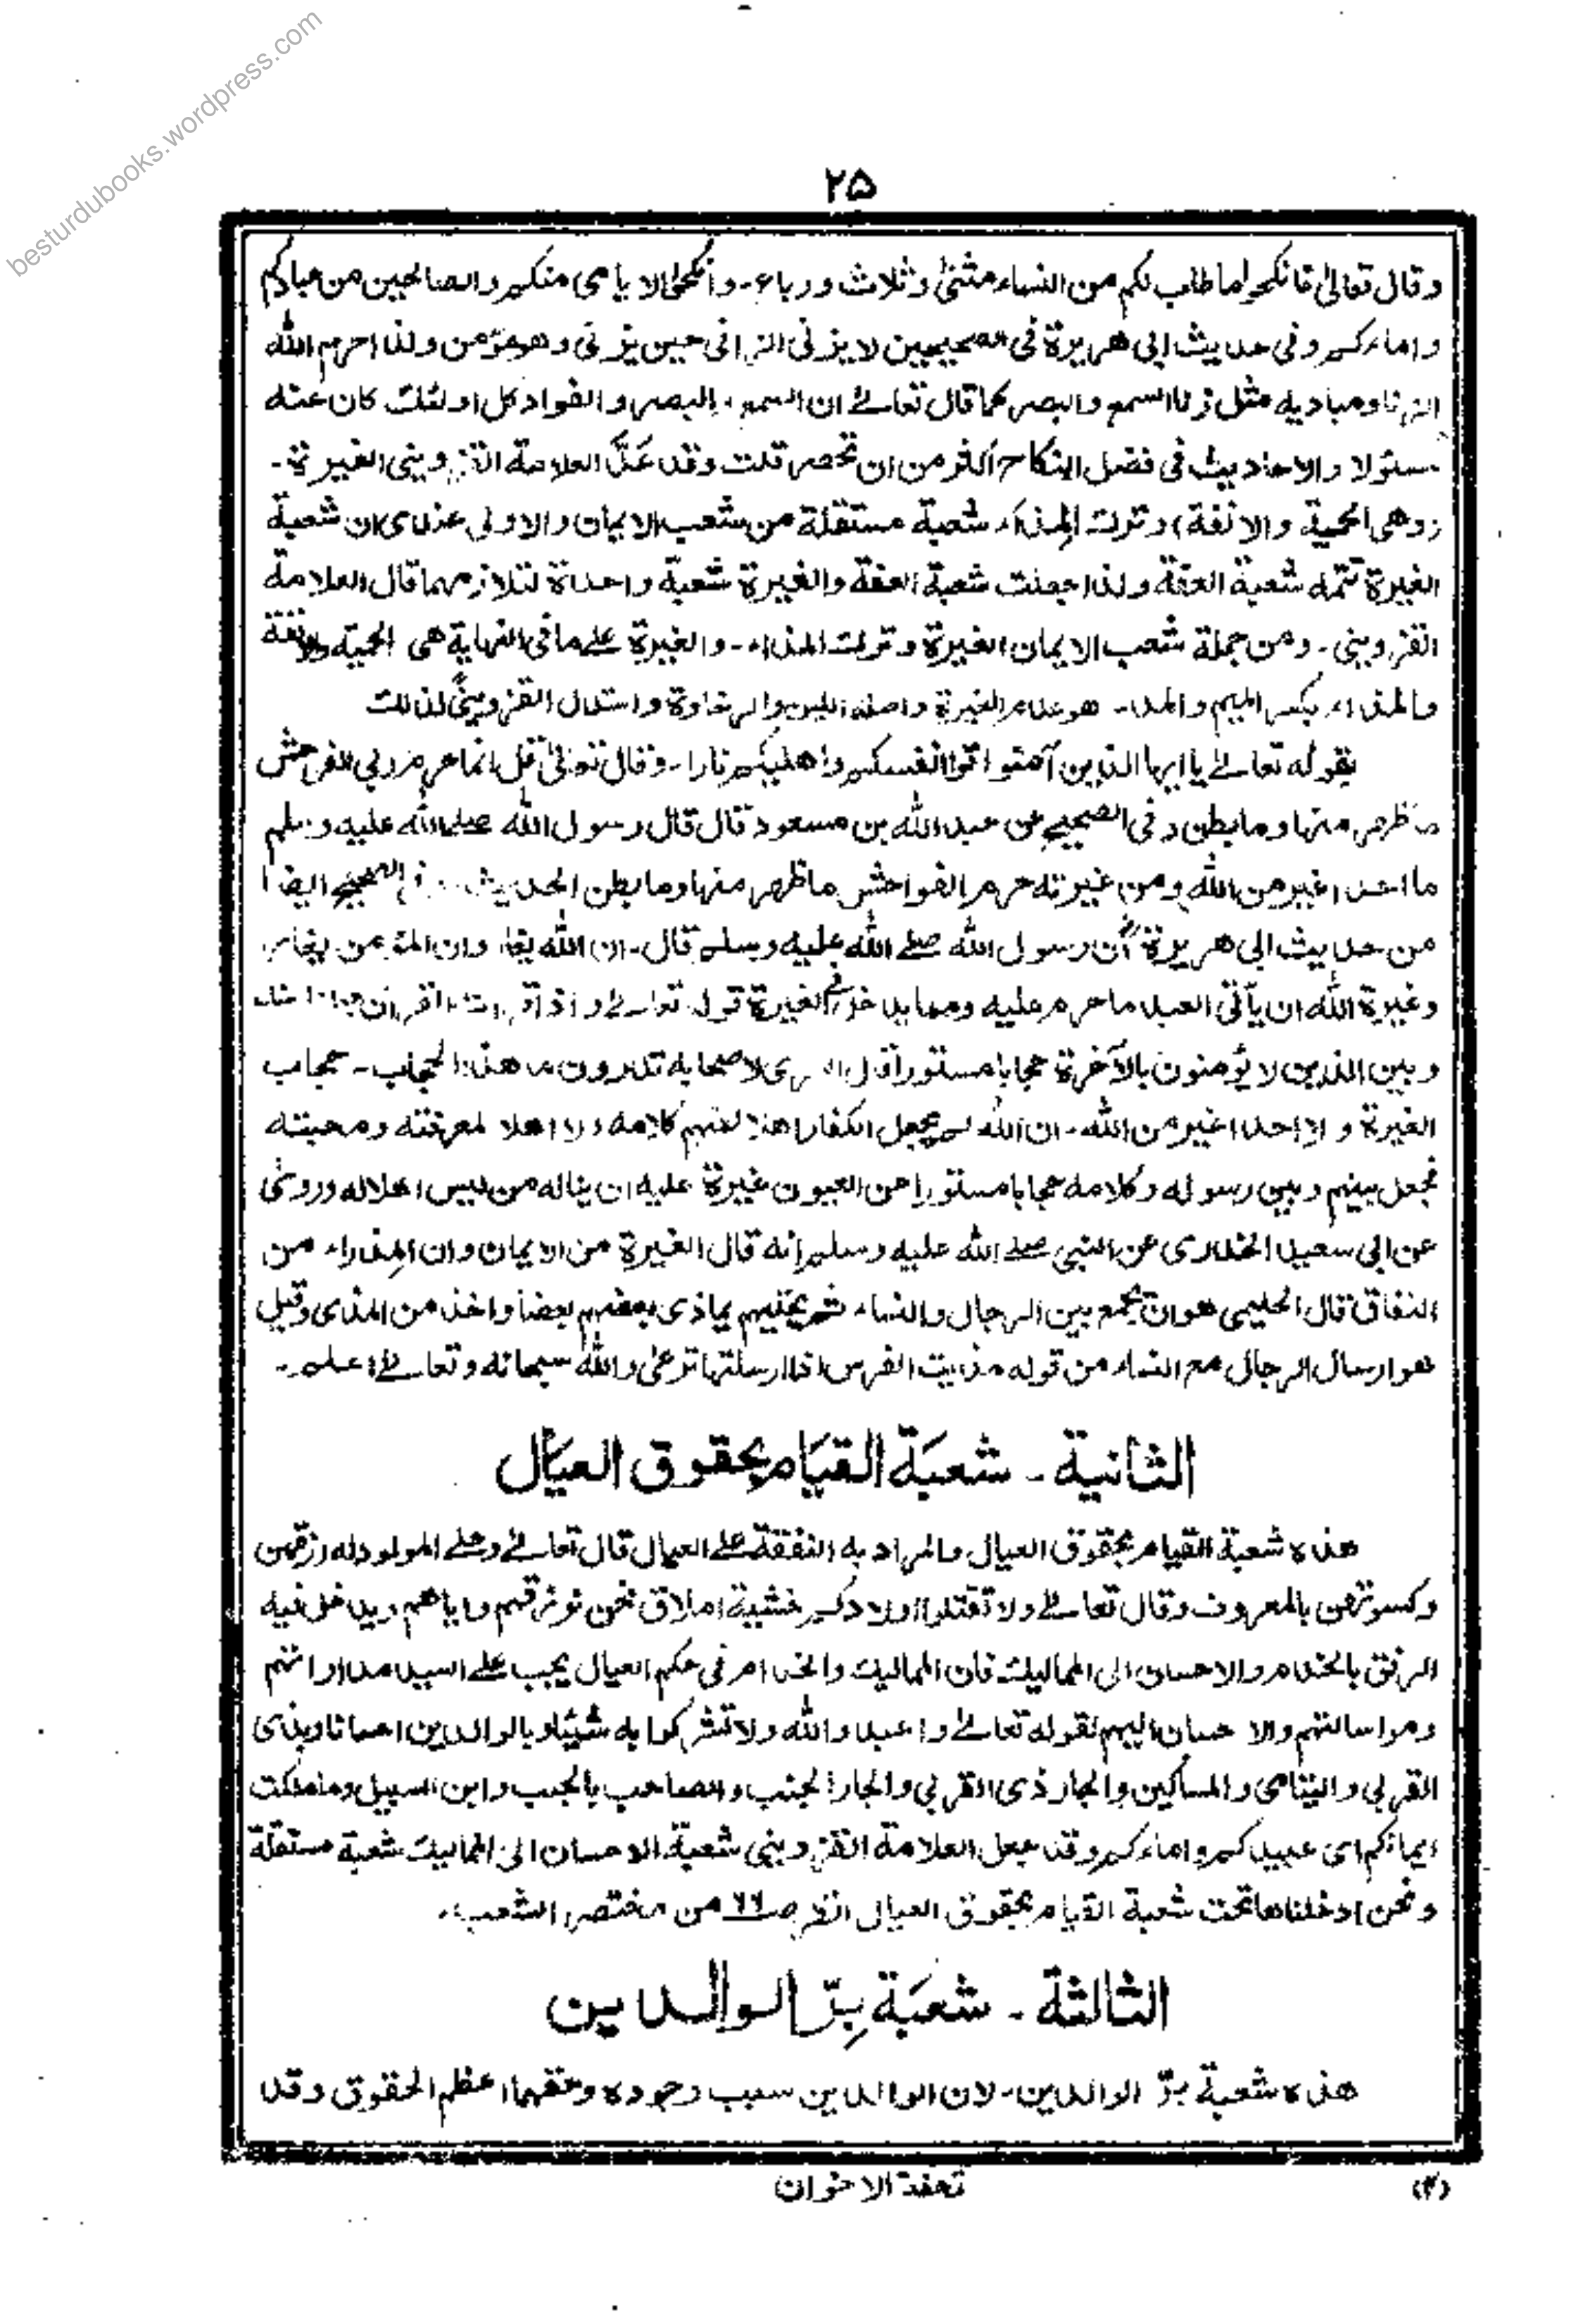 besturdubooks.wordpress.com
۲۵
وقال تعالیٰ فانكحوا ما طاب لكم من النساء مثنیٰ وثلاث ورباع۔ وأنكحوا الايامى منكم والصالحين من عبادكم
واماءكم وفى حديث ابى هريرة فى الصحيحين لايزنى الزانى حين يزنى وهو مؤمن ولذا حرم الله
الزنا ومباديه مثل زنا السمع والبصر كما قال تعالےٰ ان السمع والبصر والفواد كل اولئك كان عنه
مسئولا والاحاديث فى فضل النكاح اكثر من ان تحصر قلت وقد عَدَّ العلامة القزوينى الغيرة۔
(وهى الحمية والانفة) وترك المِذاء شعبة مستقلة من شعب الايمان والاولى عندى ان شعبة
الغيرة تتمة شعبة العفة ولذا جعلت شعبة العفة والغيرة شعبة واحدة لتلازمهما قال العلامة
القزوينى۔ ومن جملة شعب الايمان الغيرة وترك المذاء۔ والغيرة علےٰ ما فى النهاية هى الحمية والانفة
والمذاء بكسر الميم والمد۔ هو عدم الغيرة واصله اللين والرخاوة واستدل القزوينىؒ لذلك
بقوله تعالےٰ يا ايها الذين آمنوا قوا انفسكم واهليكم نارا۔ وقال تعالیٰ قل انما حرم ربى الفواحش
ما ظهر منها وما بطن وفى الصحيح عن عبد الله بن مسعود قال قال رسول الله صلى الله عليه وسلم
ما احد اغير من الله ومن غيرته حرم الفواحش ما ظهر منها وما بطن الحديث وفى الصحيح ايضا
من حديث ابى هريرةؓ أن رسول الله صلے الله عليه وسلم قال۔ ان الله يغار وان المؤمن يغار
وغيرة الله ان يأتى العبد ما حرم عليه ومما يدخل فى الغيرة قوله تعالےٰ واذا قرأت القرآن جعلنا بينك
وبين الذين لا يؤمنون بالآخرة حجابا مستورا قال السرى لاصحابه تدرون ما هذا الحجاب۔ حجاب
الغيرة ولا احد اغير من الله۔ ان الله لم يجعل الكفار اهلا لفهم كلامه ولا اهلا لمعرفته ومحبته
فجعل بينهم وبين رسوله وكلامه حجابا مستورا عن العيون غيرة عليه ان يناله من ليس اهلا له وروى
عن ابى سعيد الخدرى عن النبى صلے الله عليه وسلم انه قال الغيرة من الايمان وان المِذاء من
النفاق قال الحليمى هو ان يجمع بين الرجال والنساء ثم يخليهم يماذى بعضهم بعضا واخذ من المذى وقيل
هو ارسال الرجال مع النساء من قوله مذيت الفرس اذا ارسلتها ترعیٰ والله سبحانه وتعالےٰ اعلم۔
الثانية ۔ شعبَة القيَام بحقوق العيَال
هذه شعبة القيام بحقوق العيال والمراد به النفقة علے العيال قال تعالےٰ وعلے المولود له رزقهن
وكسوتهن بالمعروف وقال تعالےٰ ولا تقتلوا اولادكم خشية املاق نحن نرزقهم واياهم ويدخل فيه
الرفق بالخدام والاحسان الى المماليك فان المماليك والخدام فى حكم العيال يجب علے السيد مداراتهم
ومواسالتهم والاحسان اليهم لقوله تعالےٰ واعبدوالله ولا تشركوا به شيئا وبالوالدين احسانا وبذى
القربى واليتامى والمساكين والجار ذى القربى والجار الجنب والصاحب بالجنب وابن السبيل وما ملكت
ايمانكم اى عبيدكم واماءكم وقد جعل العلامة القزوينى شعبة الاحسان الى المماليك شعبة مستقلة
ونحن ادخلناها تحت شعبة القيام بحقوق العيال انظر صـ٦٦ من مختصر الشعب۔
الثالثة ۔ شعبَة بِرّ الوالدين
هذه شعبة برّ الوالدين۔ لان الوالدين سبب وجوده وحقهما اعظم الحقوق وقد
تحفة الاخوان
(۴)